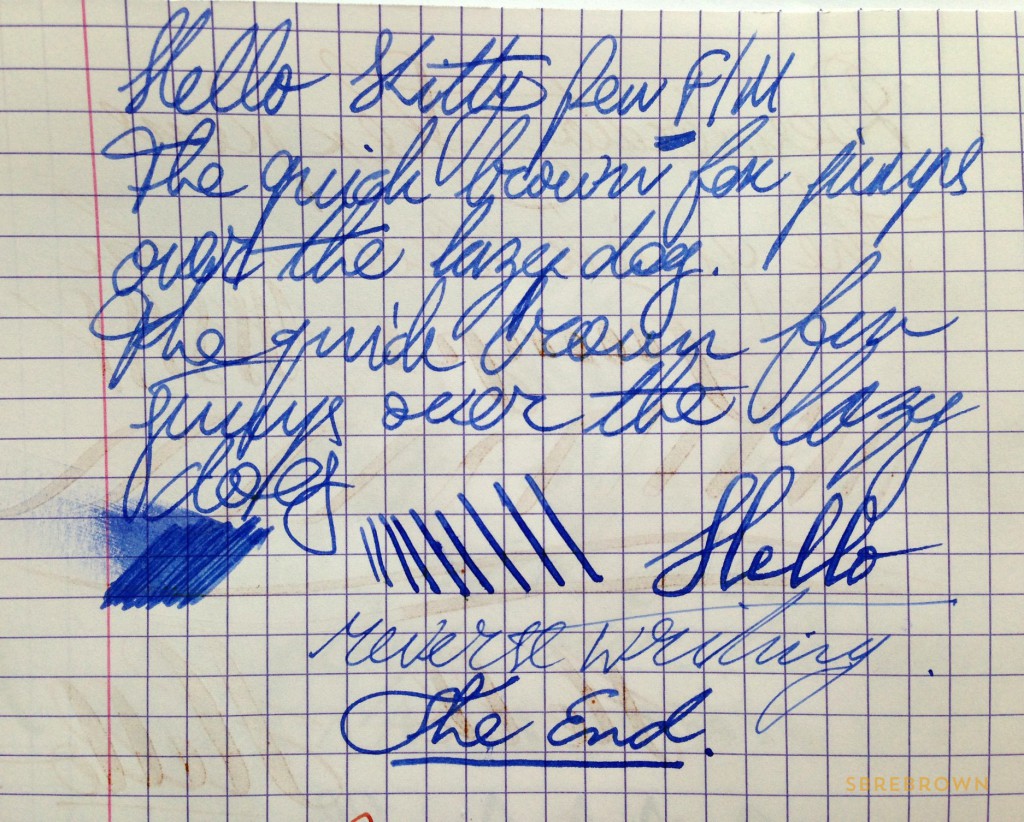 Hello Kitty pen F/M
The quick brown fox jumps
over the lazy dog.
The quick brown fox
jumps over the lazy
dog
Hello
reverse writing.
The End.
SEREBROWN